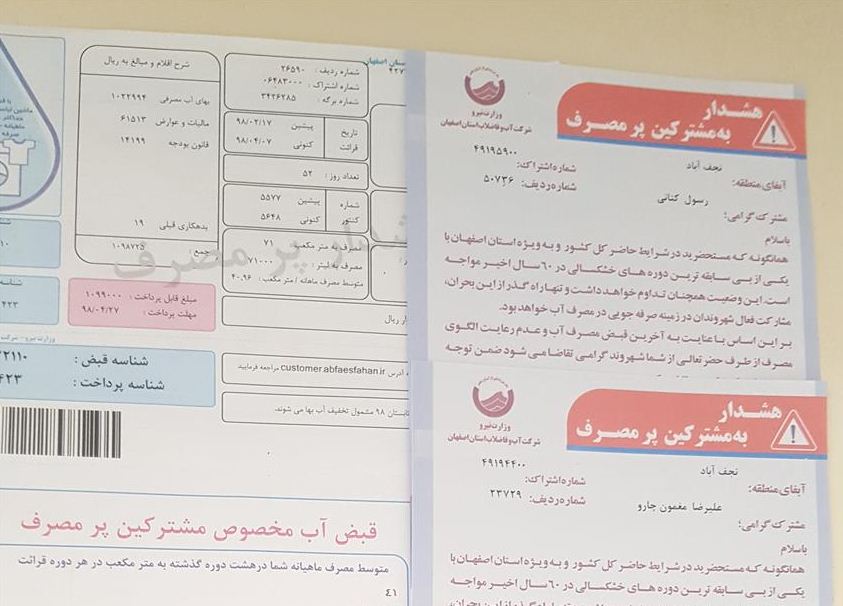 هشدار
به مشترکین پر مصرف
وزارت نیرو
شرکت آب و فاضلاب استان اصفهان
نجف آباد
۴۹۱۹۵۹۰۰
شماره اشتراک:
آبفای منطقه:
۵۰۷۳۶
شماره ردیف:
رسول کتانی
مشترک گرامی؛
باسلام
همانگونه که مستحضرید در شرایط حاضر کل کشور و به ویژه استان اصفهان با
یکی از بی سابقه ترین دوره های خشکسالی در ۶۰ سال اخیر مواجه
است. این وضعیت همچنان تداوم خواهد داشت و تنها راه گذار از این بحران،
مشارکت فعال شهروندان در زمینه صرفه جویی در مصرف آب خواهد بود.
بر این اساس با عنایت به آخرین قبض مصرف آب و عدم رعایت الگوی
مصرف از طرف حضرتعالی از شما شهروند گرامی تقاضا می شود ضمن توجه
هشدار
به مشترکین پر مصرف
وزارت نیرو
شرکت آب و فاضلاب استان اصفهان
نجف آباد
۴۹۱۹۴۴۰۰
شماره اشتراک:
آبفای منطقه:
۲۳۷۲۹
شماره ردیف:
علیرضا مغمون چارو
مشترک گرامی؛
باسلام
همانگونه که مستحضرید در شرایط حاضر کل کشور و به ویژه استان اصفهان با
یکی از بی سابقه ترین دوره های خشکسالی در ۶۰ سال اخیر مواجه
استان اصفهان
شماره ردیف : ۲۶۵۹۰
شماره اشتراک : ۰۶۴۸۳۰۰۰
شماره برگه : ۳۴۲۶۲۸۵
تاریخ قرائت
پیشین ۹۸/۰۲/۱۷
کنونی ۹۸/۰۴/۰۷
تعداد روز : ۵۲
شماره کنتور
پیشین ۵۵۷۷
کنونی ۵۶۴۸
مصرف به متر مکعب : ۷۱
مصرف به لیتر : ۷۱۰۰۰
متوسط مصرف ماهانه / متر مکعب : ۴۰.۹۶
شرح اقلام و مبالغ به ریال
بهای آب مصرفی ۱۰۲۲۹۹۴
مالیات و عوارض ۶۱۵۱۳
قانون بودجه ۱۴۱۹۹
بدهکاری قبلی ۱۹
جمع : ۱۰۹۸۷۲۵
هشدار پر مصرف
مبلغ قابل پرداخت : ۱۰۹۹۰۰۰
مهلت پرداخت : ۹۸/۰۴/۲۷
ریال
آدرس customer.abfaesfahan.ir مراجعه فرمایید
تابستان ۹۸ مشمول تخفیف آب بها می شوند.
شناسه قبض :
شناسه پرداخت :
قبض آب مخصوص مشترکین پر مصرف
متوسط مصرف ماهیانه شما درهشت دوره گذشته به متر مکعب در هر دوره قرائت
۴۱